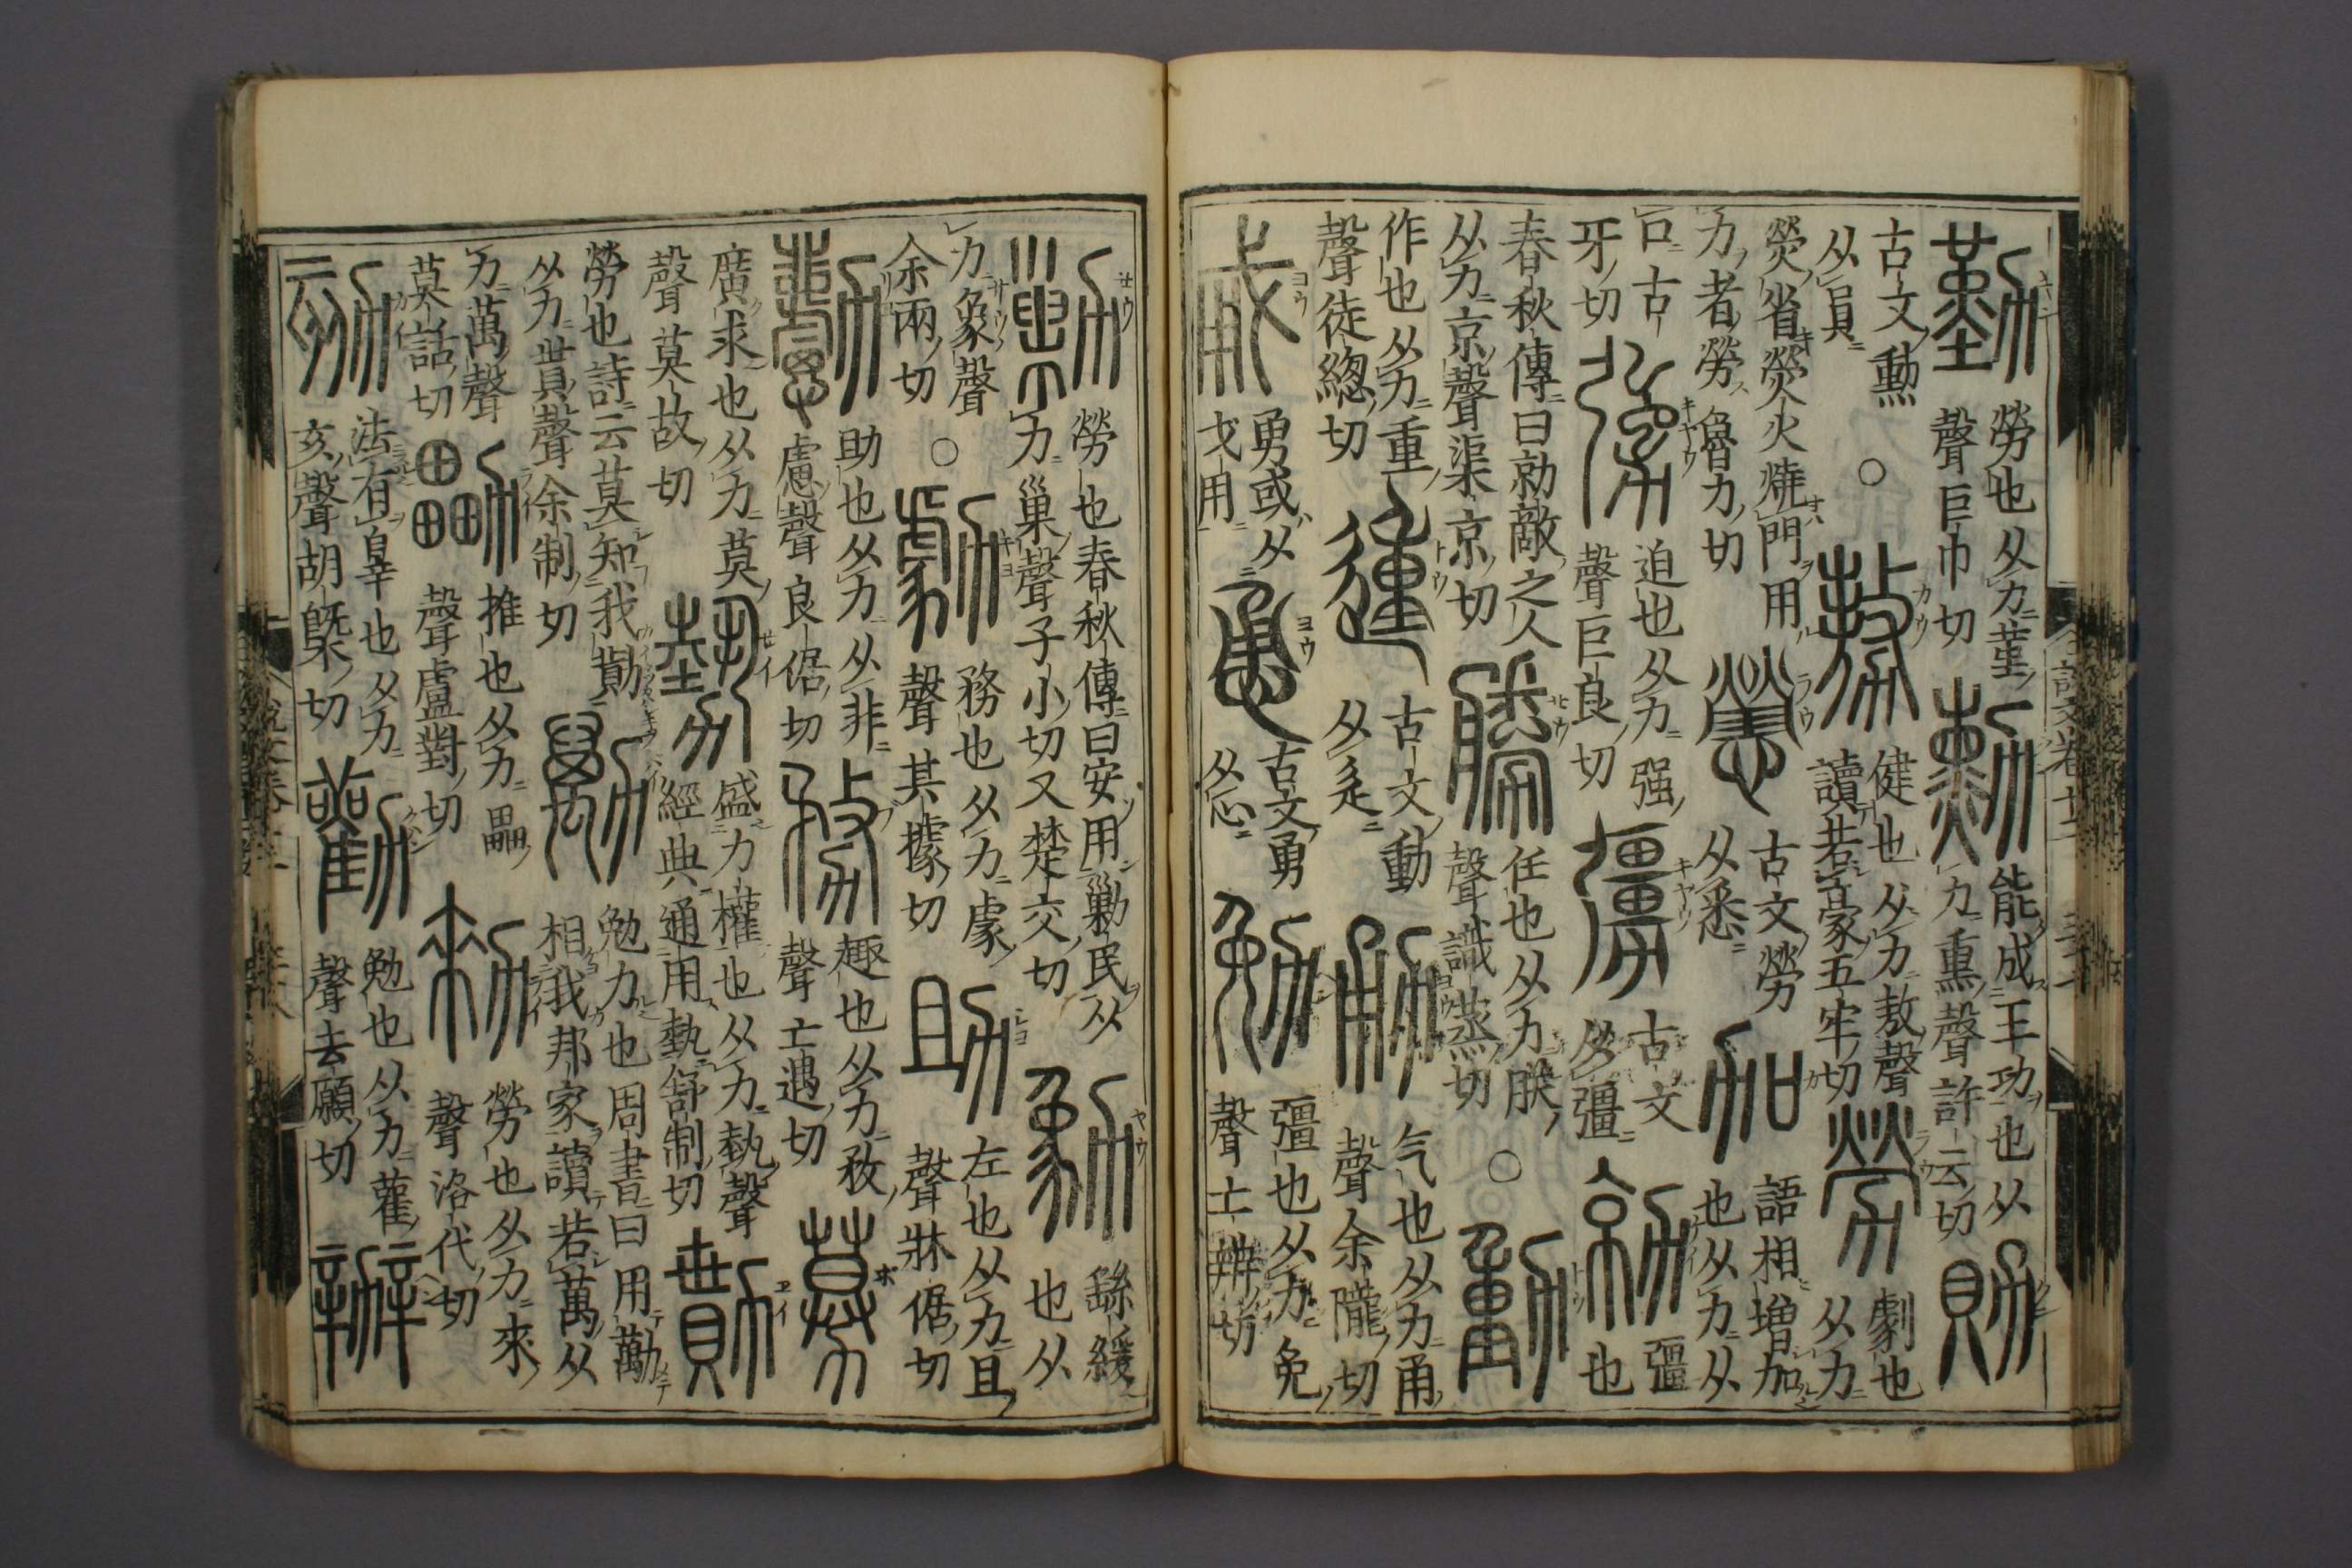 勤勞也从力堇聲巨巾切勳能成王功也从力熏聲許云切勛
古文勳从員○勢健也从力敖聲讀若豪五牢切勞劇也从力
熒省熒火燒門用力者勞魯刀切古文勞从悉加語相增加也从力从
口古牙切勥迫也从力强聲巨良切古文从彊勍彊也
春秋傳曰勍敵之人从力京聲渠京切勝任也从力朕聲識蒸切○動
作也从力重聲徒總切古文動从辵勇气也从力甬聲余隴切
勇或从戈用古文勇从心勉彊也从力免聲亡辨切
勦勞也春秋傳曰安用勦民从力巢聲子小切又楚交切勨繇緩也从
力象聲余兩切○勮務也从力豦聲其據切助左也从力且聲牀倨切
勴助也从力从非慮聲良倨切務趣也从力敄聲亡遇切募
廣求也从力莫聲莫故切勢盛力權也从力埶聲經典通用埶舒制切勩
勞也詩云莫知我勩从力貰聲余制切勱勉力也周書曰用勱相我邦家讀若萬从
力萬聲莫話切推也从力畾聲盧對切勑勞也从力來聲洛代切
劾法有辠也从力亥聲胡槩切勸勉也从力雚聲去願切辦